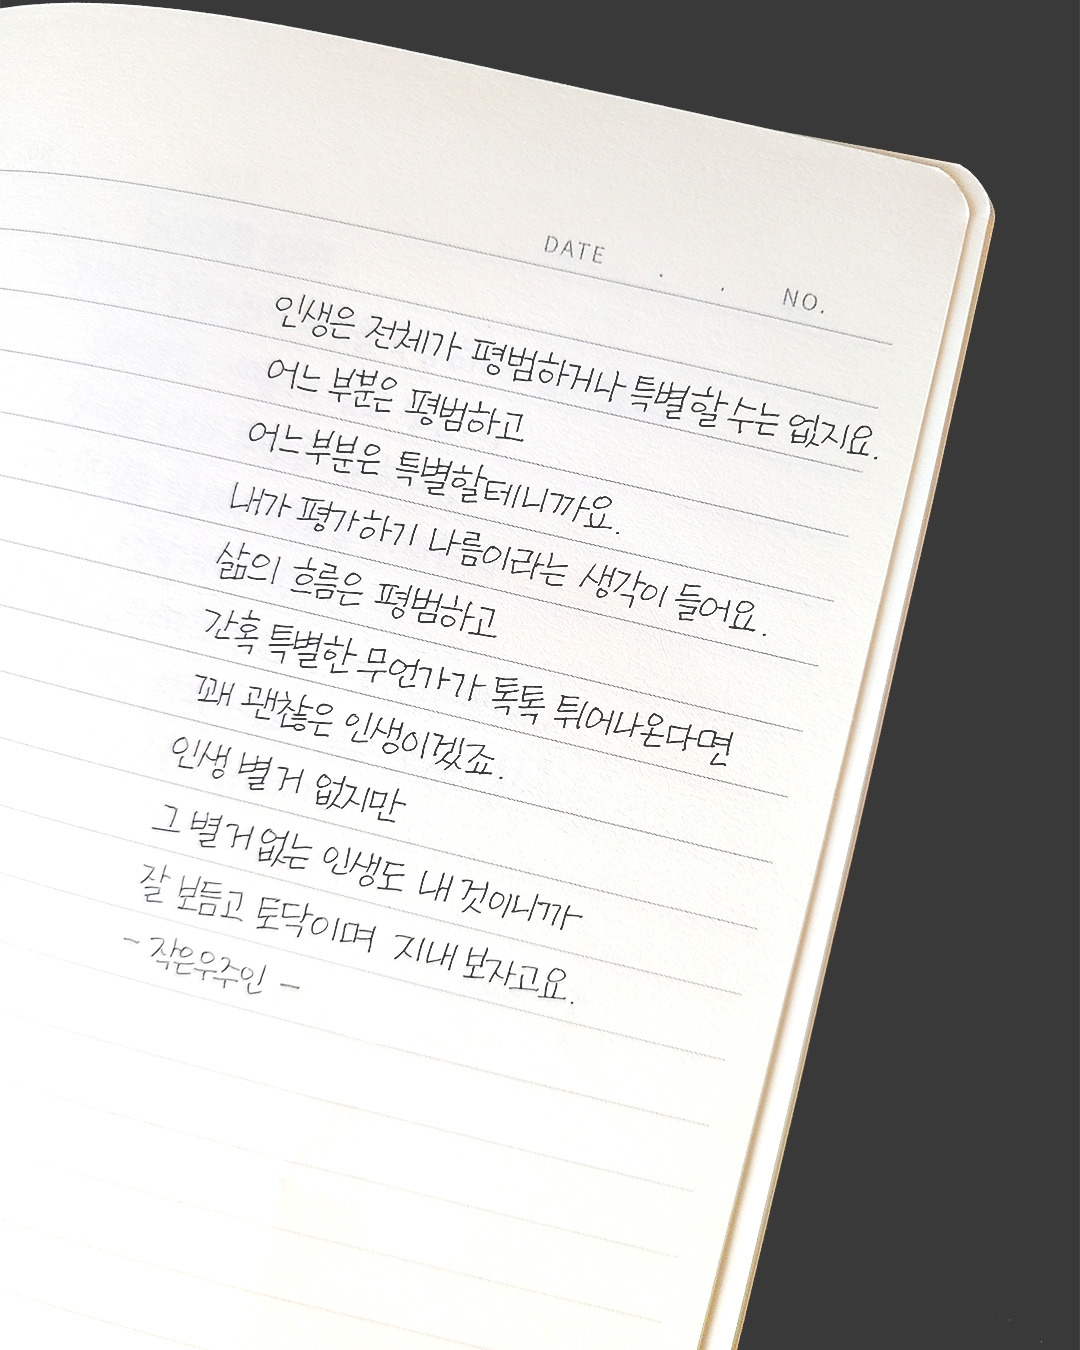 DATE . . NO.
인생은 전체가 평범하거나 특별할 수는 없지요.
어느 부분은 평범하고
어느 부분은 특별할테니까요.
내가 평가하기 나름이라는 생각이 들어요.
삶의 흐름은 평범하고
간혹 특별한 무언가가 톡톡 튀어나온다면
꽤 괜찮은 인생이겠죠.
인생 별거 없지만
그 별거 없는 인생도 내 것이니까
잘 보듬고 토닥이며 지내 보자고요.
- 작은우주인 -